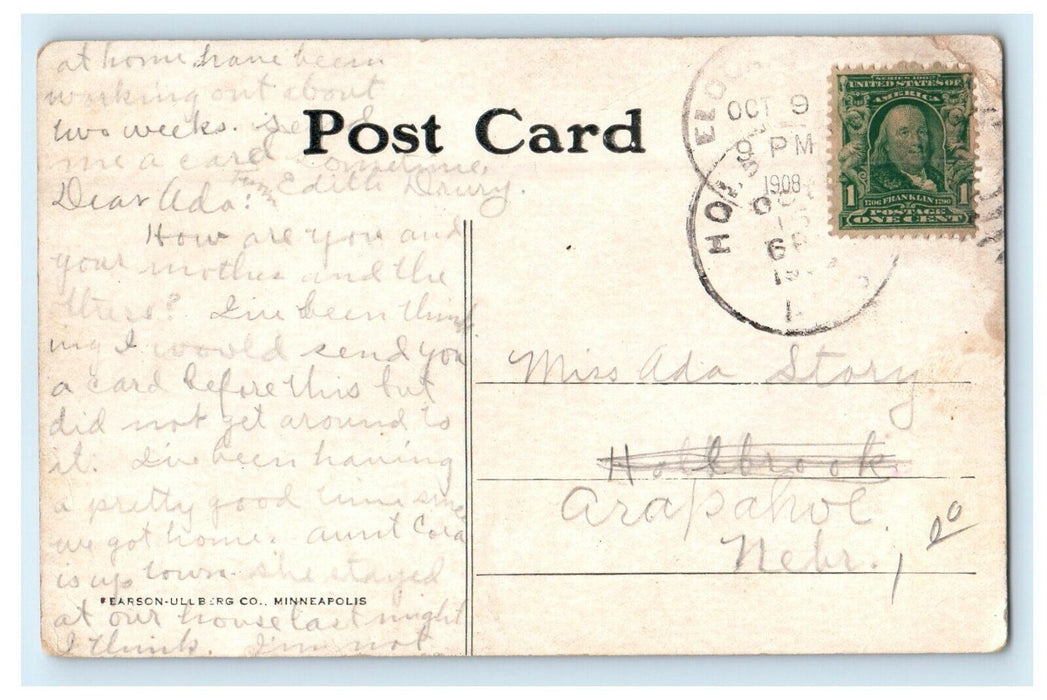 at home have been
working out about
two weeks. send
me a card sometime.
From Edith Drury.
Post Card
Dear Ada:
How are you and
your mother and the
others? I've been think
ing I would send you
a card before this but
did not get around to
it. I've been having
a pretty good time since
we got home. Aunt Cora
is up town. she stayed
at our house last night
I think. I'm not
PEARSON-ULLBERG CO., MINNEAPOLIS
OCT 9
PM
1908
HOL
6P
SERIES 1902
UNITED STATES OF
AMERICA
1 1
1706 FRANKLIN 1790
POSTAGE
ONE CENT
Miss Ada Story
Hollbrook
Arapahoe,
Nebr.,